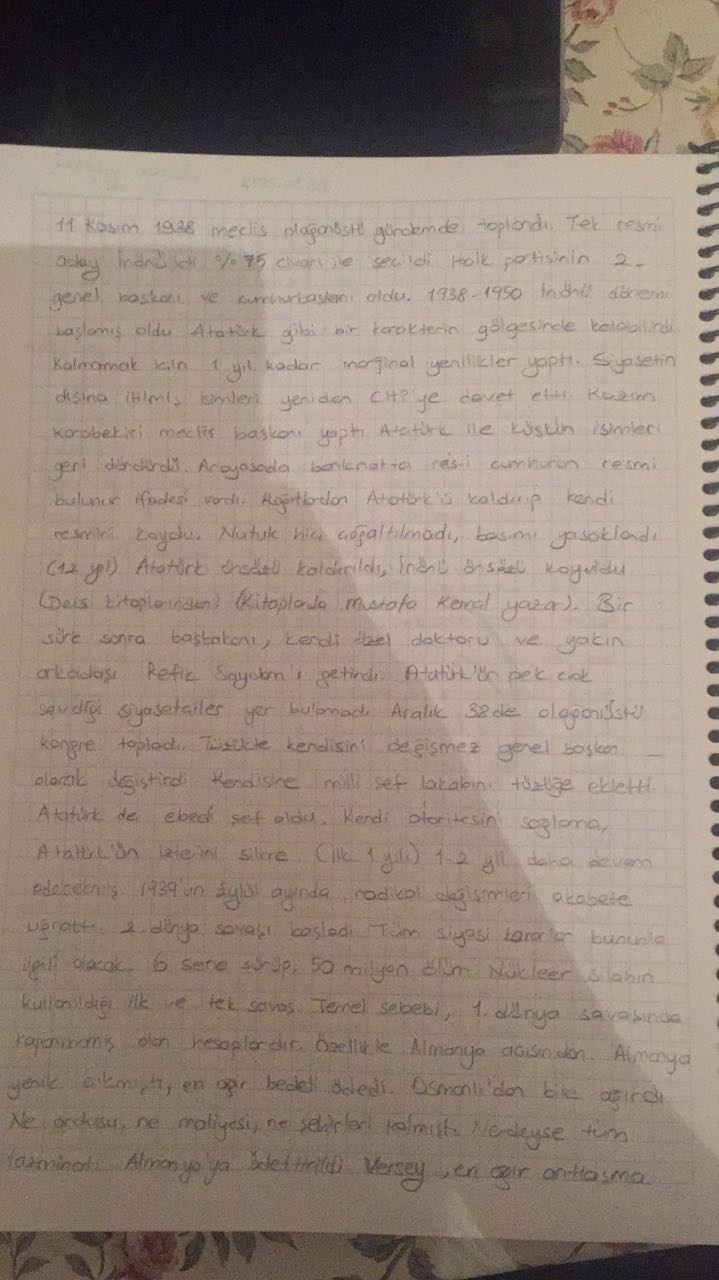 11 Kasım 1938 meclis olağanüstü gündemde toplandı. Tek resmi
aday İnönü'ydü. %75 civarı ile seçildi Halk partisinin 2.
genel başkanı ve cumhurbaşkanı oldu. 1938-1950 İnönü dönemi
başlamış oldu Atatürk gibi bir karakterin gölgesinde kalabilirdi.
Kalmamak için 1 yıl kadar marjinal yenilikler yaptı. Siyasetin
dışına itilmiş isimleri yeniden CHP'ye davet etti. Kazım
karabekiri meclis başkanı yaptı. Atatürk ile küskün isimleri
geri döndürdü. Anayasada banknotta reis-i cumhurun resmi
bulunur ifadesi vardı. Kağıtlardan Atatürk'ü kaldırıp kendi
resmini koydu. Nutuk hiç çoğaltılmadı, basımı yasaklandı
(12 yıl) Atatürk önsözü kaldırıldı, İnönü önsözü koyuldu
(Ders kitaplarından) (Kitaplarda Mustafa Kemal yazar). Bir
süre sonra başbakanı, kendi özel doktoru ve yakın
arkadaşı Refik Saydam'ı getirdi. Atatürk'ün pek çok
sevdiği siyasetçiler yer bulamadı Aralık 38de olağanüstü
kongre topladı. Tüzükte kendisini değişmez genel başkan
olarak değiştirdi Kendisine milli şef lakabını tüzüğe ekletti.
Atatürk de ebedi şef oldu. Kendi otoritesini sağlama,
Atatürk'ün izlerini silme. (İlk 1 yılı) 1-2 yıl daha devam
edecekmiş. 1939'un Eylül ayında, radikal değişimleri akabete
uğrattı. 2. dünya savaşı başladı Tüm siyasi kararlar bununla
ilgili olacak. 6 sene sürüp, 50 milyon ölüm. Nükleer silahın
kullanıldığı ilk ve tek savaş. Temel sebebi, 1. dünya savaşında
kapanmamış olan hesaplardır. Özellikle Almanya açısından. Almanya
yenik çıkmıştı, en ağır bedeli ödedi. Osmanlı'dan bile ağırdı
Ne ordusu, ne maliyesi, ne şehirleri kalmıştı. Nerdeyse tüm
tazminatı Almanya'ya ödettirildi Versey, en ağır antlaşma.